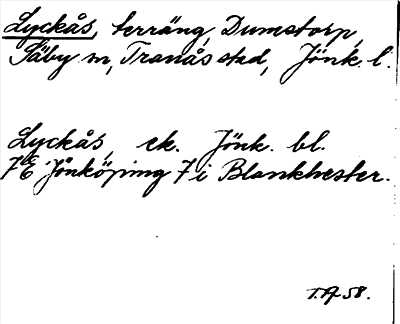 Lyckås, terräng, Dumstorp,
Säby sn, Tranås stad, Jönk. l.
Lyckås, ek. Jönk. bl.
7E Jönköping 7 i Blankhester.
T.A 58.